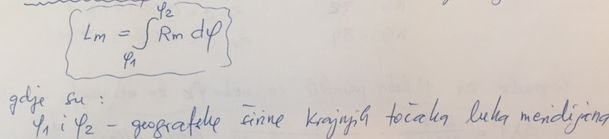 Lm = ∫φ1φ2 Rm dφ
gdje su :
φ1 i φ2 - geografske širine krajnjih točaka luka meridijana